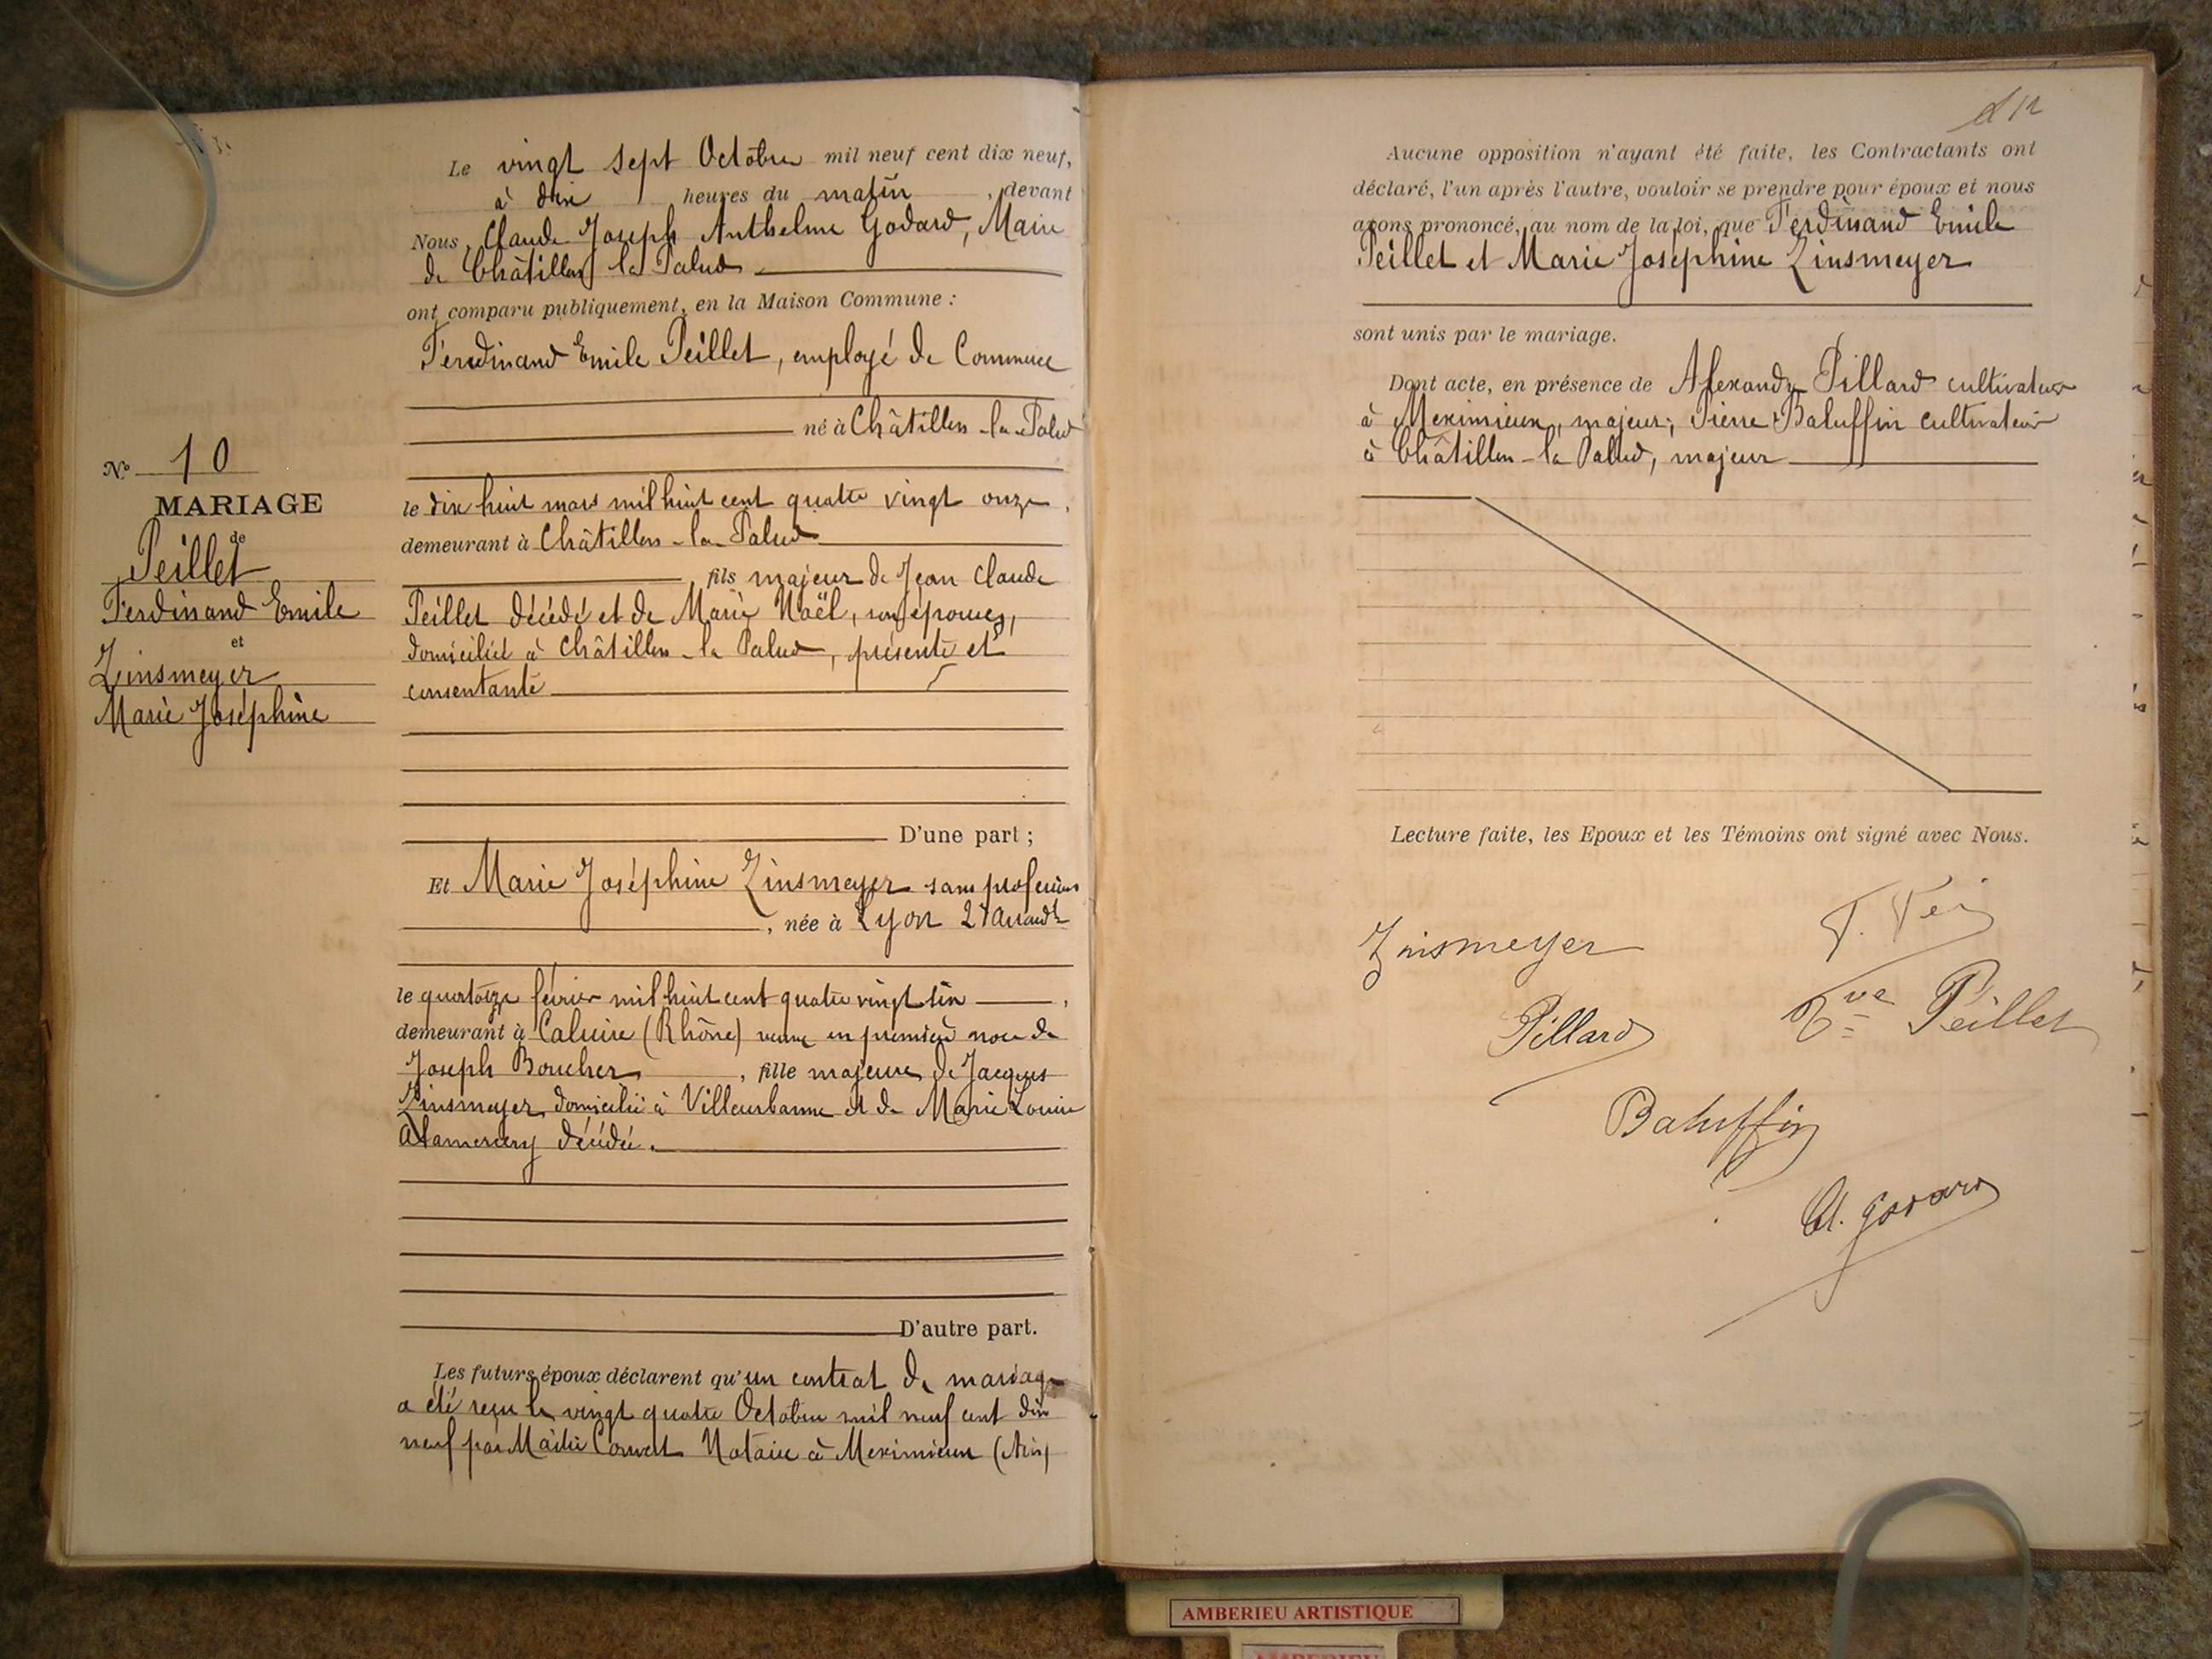 Le vingt sept Octobre mil neuf cent dix neuf,
à dix heures du matin, devant
Nous, Claude Joseph Anthelme Godard, Maire
de Châtillon la Palud
ont comparu publiquement, en la Maison Commune :
Ferdinand Emile Peillet, employé de Commerce
né à Châtillon-la-Palud
le dix huit mars mil huit cent quatre vingt onze,
demeurant à Châtillon-la-Palud
, fils majeur de Jean Claude
Peillet décédé et de Marie Noël, son épouse,
domiciliée à Châtillon-la Palud, présente et
consentante
D'une part ;
Et Marie Joséphine Zinsmeyer sans profession
, née à Lyon 2e Arrondt
le quatorze février mil huit cent quatre vingt six,
demeurant à Caluire (Rhône) veuve en première noce de
Joseph Boucher, fille majeure de Jacques
Zinsmeyer domicilié à Villeurbanne et de Marie Louise
décédée.
D'autre part.
Les futurs époux déclarent qu'un contrat de mariage
a été reçu le vingt quatre Octobre mil neuf cent dix
neuf par Maître Convert Notaire à Meximieux (Ain)
No 10
MARIAGE
de
Peillet
Ferdinand Emile
et
Zinsmeyer
Marie Joséphine
Aucune opposition n'ayant été faite, les Contractants ont
déclaré, l'un après l'autre, vouloir se prendre pour époux et nous
avons prononcé, au nom de la loi, que Ferdinand Emile
Peillet et Marie Joséphine Zinsmeyer
sont unis par le mariage.
Dont acte, en présence de Alexandre Pillard cultivateur
à Meximieux, majeur; Pierre Baluffin cultivateur
à Châtillon-la Palud, majeur
Lecture faite, les Epoux et les Témoins ont signé avec Nous.
Zinsmeyer
Pillard
Vve Peillet
Baluffin
Cl. Godard
AMBERIEU ARTISTIQUE
AMBERIEU